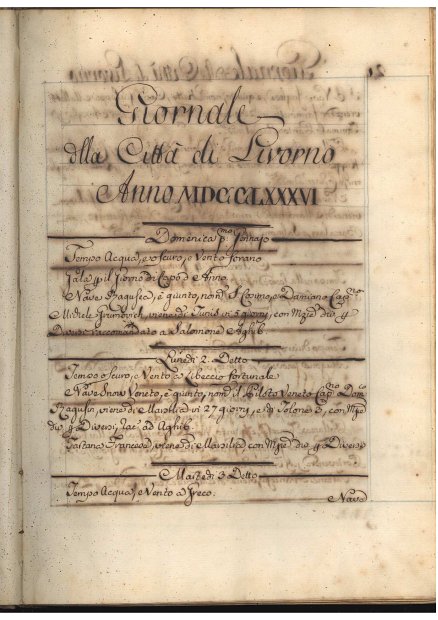 Giornale
della Città di Livorno
Anno MDCCLXXXVI
Domenica p.mo Gennajo
Tempo Acqua, e oscuro, e Vento
Gala p il Giorno di Capo d'Anno
Nave Ragusea, è giunto, nom. S. Cosimo, e Damiano Cap.no
Michele, viene di Tunis in 5 giorni, con Mzie div. p
raccomandato a Salomone Aghib
Lunedì 2. Detto
Tempo oscuro, e Vento a Libeccio fortunale
Nave Snow Veneto, è giunto, nom. il Veneto Cap.no Dom.co
Ragusin, viene di Marsilia in 27 giorni, e di Tolone 3, con Mzie
div. p Diversi, rac. ad Aghib
Gaetana Francese, viene di Marsilia con Mzie div. p Diversi
Martedì 3 Detto
Tempo Acqua, e Vento a Greco.
Nave